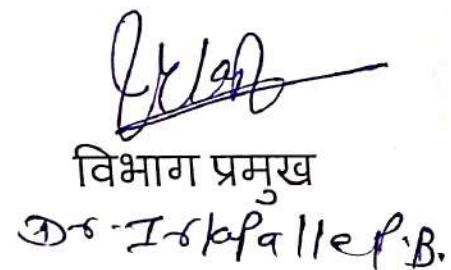 विभाग प्रमुख
Dr. Irlapalle P.B.